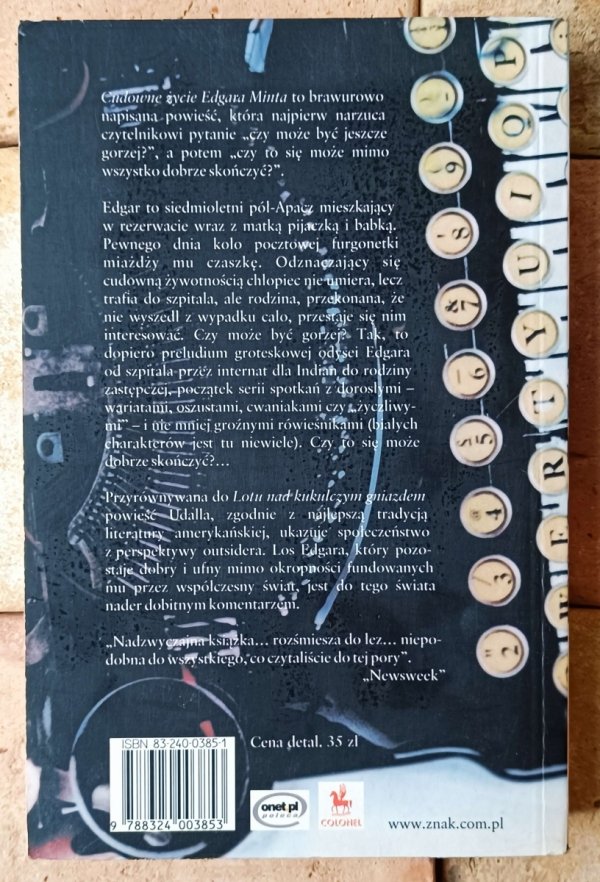 Cudowne życie Edgara Minta to brawurowo
napisana powieść, która najpierw narzuca
czytelnikowi pytanie „czy może być jeszcze
gorzej?”, a potem „czy to się może mimo
wszystko dobrze skończyć?”.
Edgar to siedmioletni pół-Apacz mieszkający
w rezerwacie wraz z matką pijaczką i babką.
Pewnego dnia koło pocztowej furgonetki
miażdży mu czaszkę. Odznaczający się
cudowną żywotnością chłopiec nie umiera, lecz
trafia do szpitala, ale rodzina, przekonana, że
nie wyszedł z wypadku cało, przestaje się nim
interesować. Czy może być gorzej? Tak, to
dopiero preludium groteskowej odysei Edgara
od szpitala przez internat dla Indian do rodziny
zastępczej, początek serii spotkań z dorosłymi –
wariatami, oszustami, cwaniakami czy „życzliwy-
mi” – i nie mniej groźnymi rówieśnikami (białych
charakterów jest tu niewiele). Czy to się może
dobrze skończyć?...
Przyrównywana do Lotu nad kukułczym gniazdem
powieść Udalla, zgodnie z najlepszą tradycją
literatury amerykańskiej, ukazuje społeczeństwo
z perspektywy outsidera. Los Edgara, który pozo-
staje dobry i ufny mimo okropności fundowanych
mu przez współczesny świat, jest do tego świata
nader dobitnym komentarzem.
„Nadzwyczajna książka... rozśmiesza do łez... niepo-
dobna do wszystkiego, co czytaliście do tej pory”.
„Newsweek”
ISBN 83-240-0385-1
9 788324 003853
Cena detal. 35 zł
onet.pl
poleca
COLONEL
www.znak.com.pl
P
O
I
U
Y
T
R
E
W
9
8
7
6
5
4
3
" 2